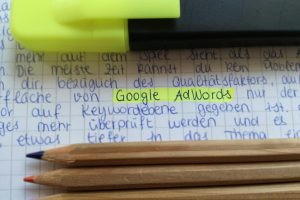 mehr auf dem Spiel steht als das
Die meiste Zeit kannst du kein
dir, bezüglich des Qualitätsfaktors au
fläche von Google AdWords nur der
or auf Keywordebene gegeben ist.
ges mehr überprüft werden und es
etwas tiefer in das Thema e